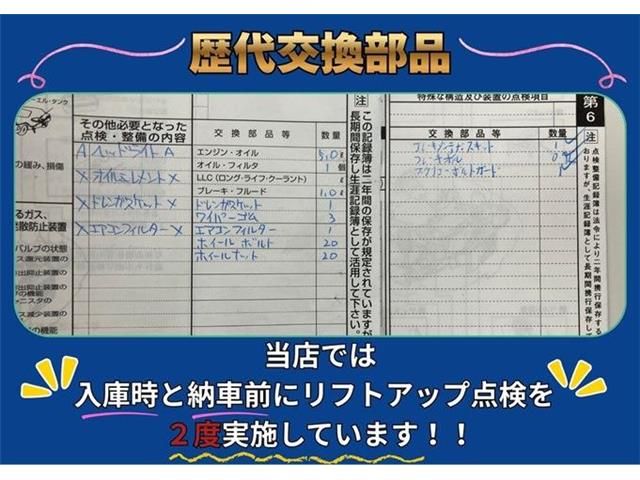 歴代交換部品
ーエル・タンク
の緩み、損傷
るガス、
発散防止装置
バルブの状態
ス還元装置の
出抑止装置の
の機能
ャニスタの
ス減少装置の
の機能
その他必要となった
点検・整備の内容
A ヘッドライト A
X オイルエレメント X
X ドレンガスケット X
X エアコンフィルター X
交換部品等 数量
エンジン・オイル 5.0 ℓ
オイル・フィルタ 1 個
LLC(ロング・ライフ・クーラント) ℓ
ブレーキ・フルード 1.0 ℓ
ドレンガスケット 1
ワイパーゴム 3
エアコンフィルター 1
ホイールボルト 20
ホイールナット 20
注
この記録簿は二年間の保存が規定されていますが
長期間保存し生涯記録簿として活用して下さい。
特殊な構造及び装置の点検項目
交換部品等 数量
第6
注
点検整備記録簿は法令により二年間携行保存する
おりますが、生涯記録簿として長期間携行保存して
当店では
入庫時と納車前にリフトアップ点検を
２度実施しています！！